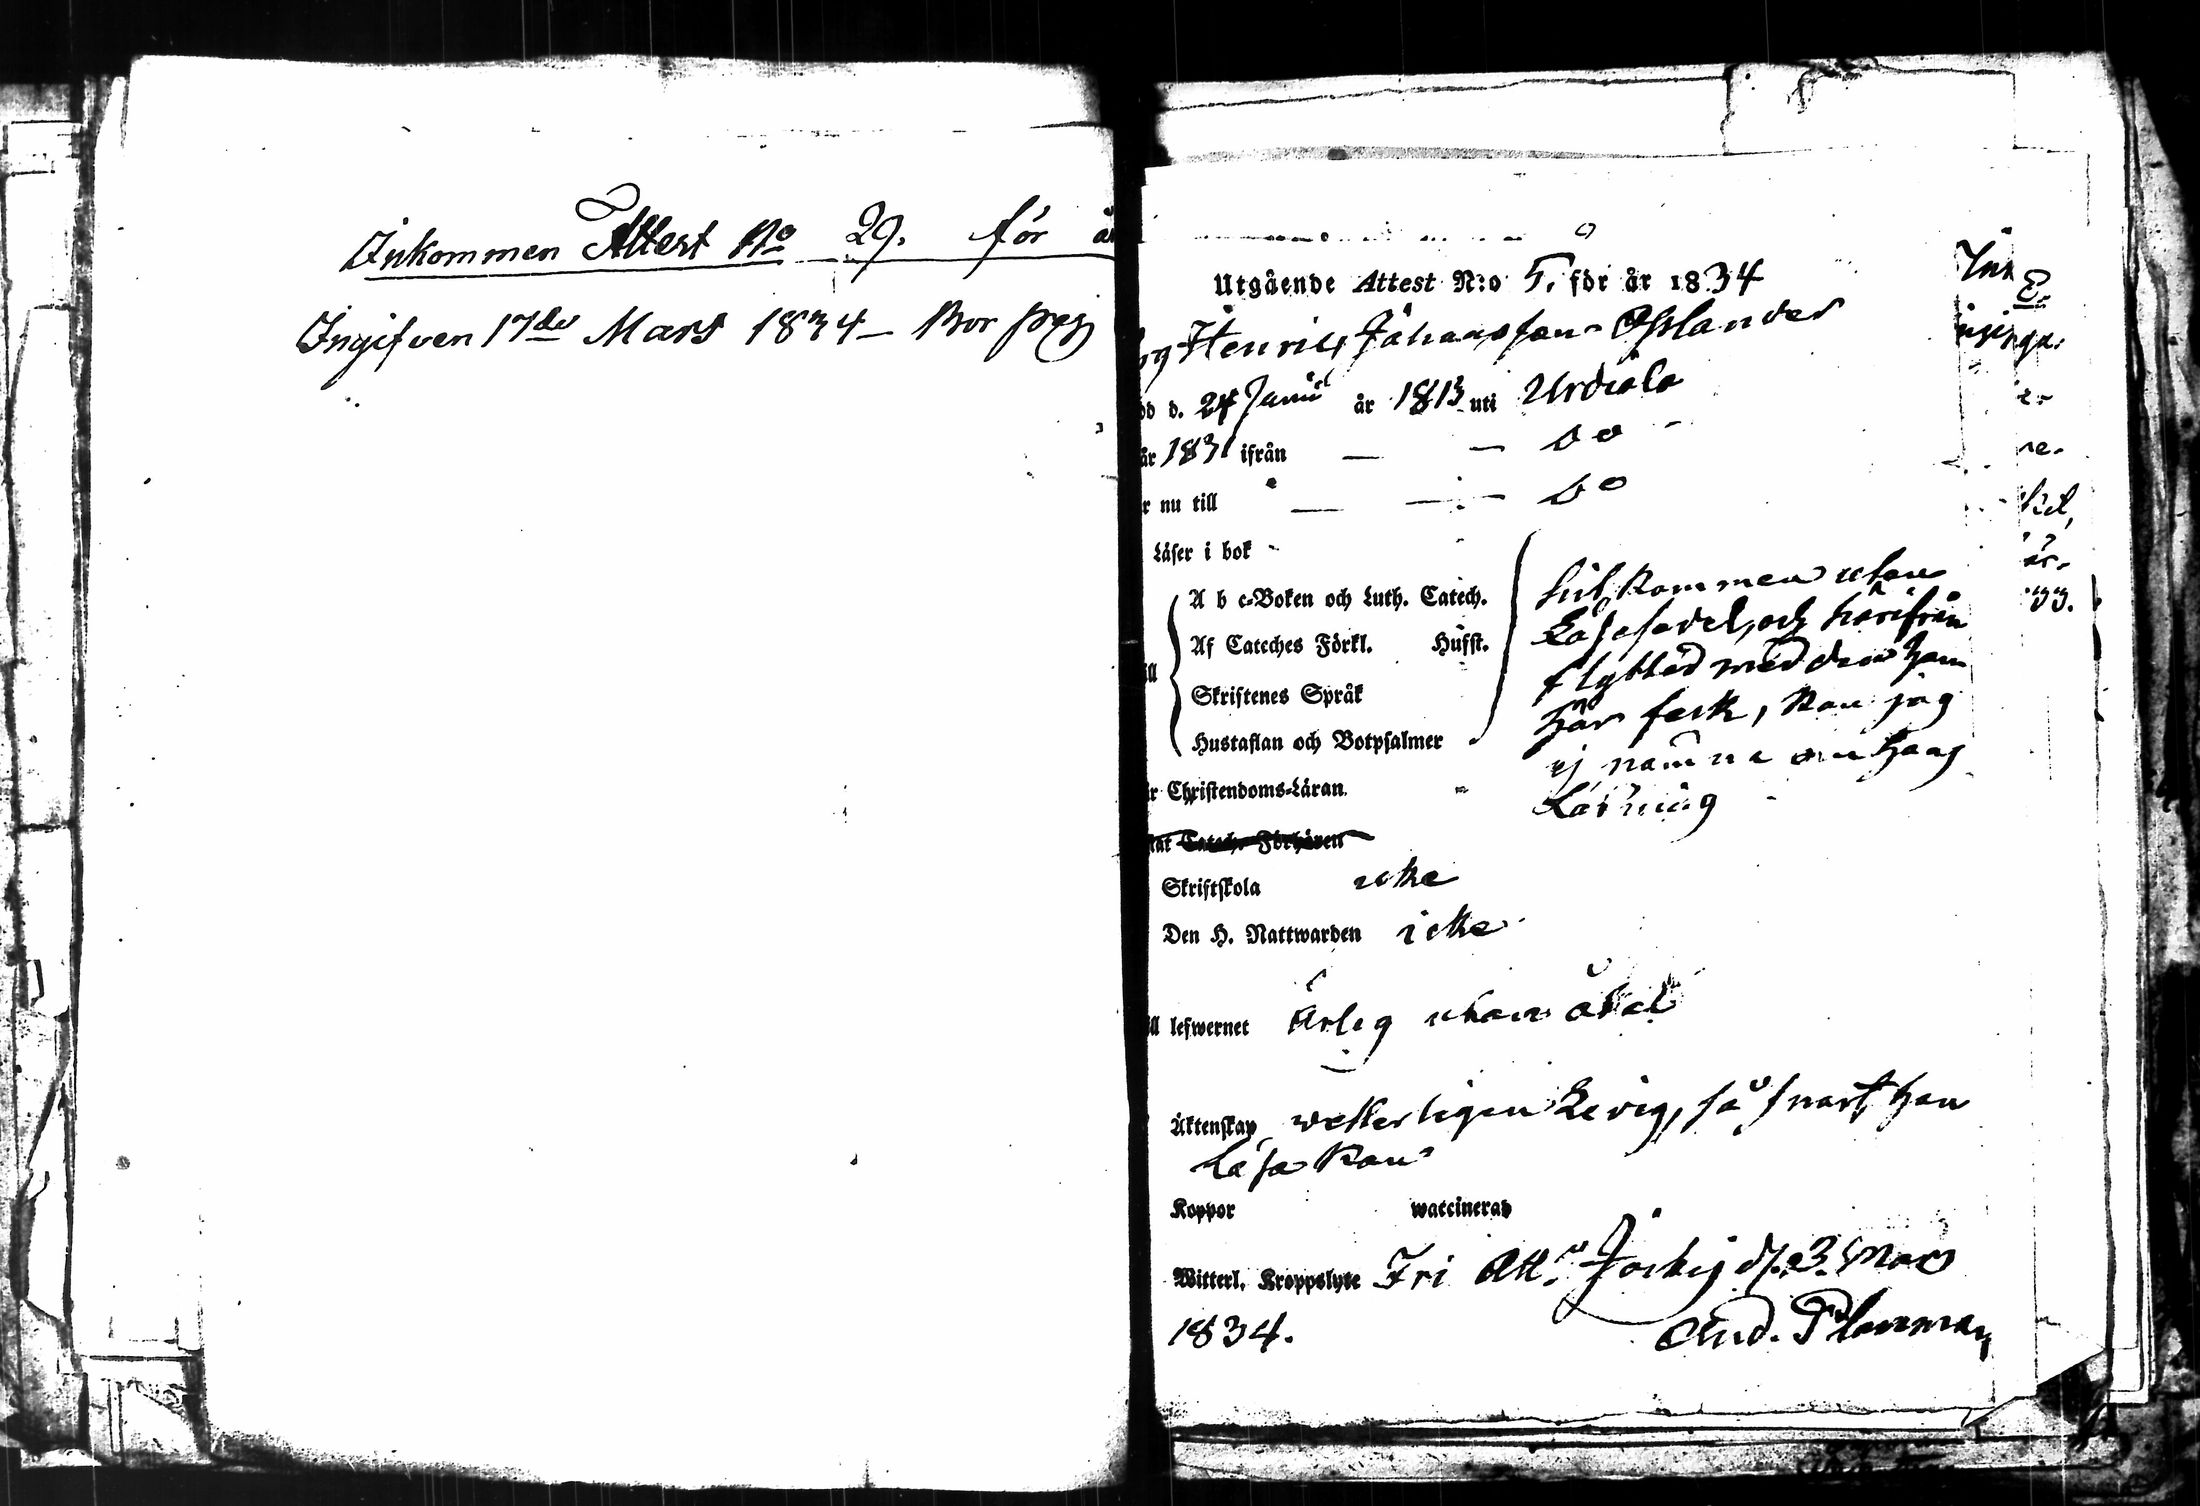 Inkommen Attest No 29. för å
Ingifven 17de Mars 1834 - Bor pag
Utgående Attest N:o 5, för år 1834
g Henric Johansson Osslander
dd d. 24 Junii år 1813 uti Urdiala
år 1831 ifrån — — Do
r nu till — — Do
Läser i bok
A b c-Boken och Luth. Catech.
Af Cateches Förkl. Hufst.
Skriftenes Språk
Hustaflan och Botpsalmer
hit kommen utan
Läsesedel, och härifrån
flyttad med den han
här feck, kan jag
ej nämna om hans
Läsning
r Christendoms-Läran
Catech. Förhören
Skriftskola icke
Den H. Nattwarden icke
ll lefwernet Ärlig utan åtal
Äktenskap vetterligen Ledig, så snart han
Läsa kan
Koppor waccinerad
Witterl. Kroppslyte Fri Att. Jockis d. 3 Mars
1834. And. Planman